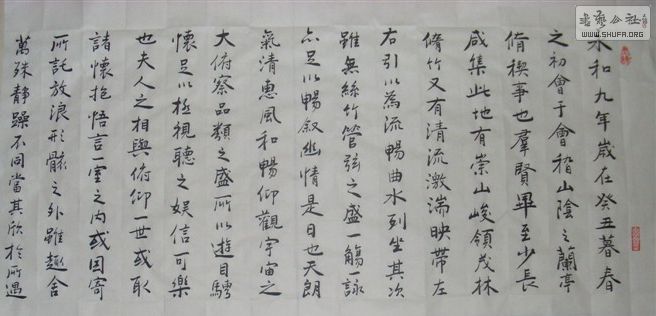 永和九年歲在癸丑暮春
之初會于會稽山陰之蘭亭
脩禊事也羣賢畢至少長
咸集此地有崇山峻領茂林
脩竹又有清流激湍映帶左
右引以為流暢曲水列坐其次
雖無絲竹管弦之盛一觴一詠
亦足以暢敘幽情是日也天朗
氣清惠風和暢仰觀宇宙之
大俯察品類之盛所以遊目騁
懷足以極視聽之娛信可樂
也夫人之相與俯仰一世或取
諸懷抱悟言一室之內或因寄
所託放浪形骸之外雖趣舍
萬殊靜躁不同當其欣於所遇
書藝公社
WWW.SHUFA.ORG